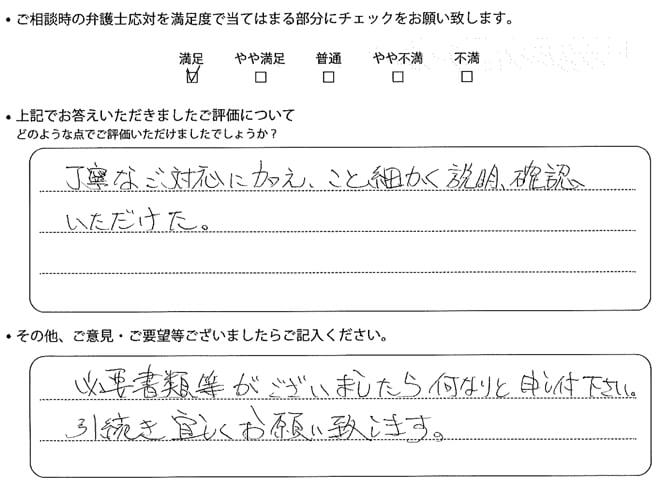 • ご相談時の弁護士応対を満足度で当てはまる部分にチェックをお願い致します。
満足 やや満足 普通 やや不満 不満
☑ □ □ □ □
• 上記でお答えいただきましたご評価について
どのような点でご評価いただけましたでしょうか？
丁寧なご対応に加え、こと細かく説明、確認
いただけた。
• その他、ご意見・ご要望等ございましたらご記入ください。
必要書類等がございましたら何なりと申し付下さい。
引続き宜しくお願い致します。